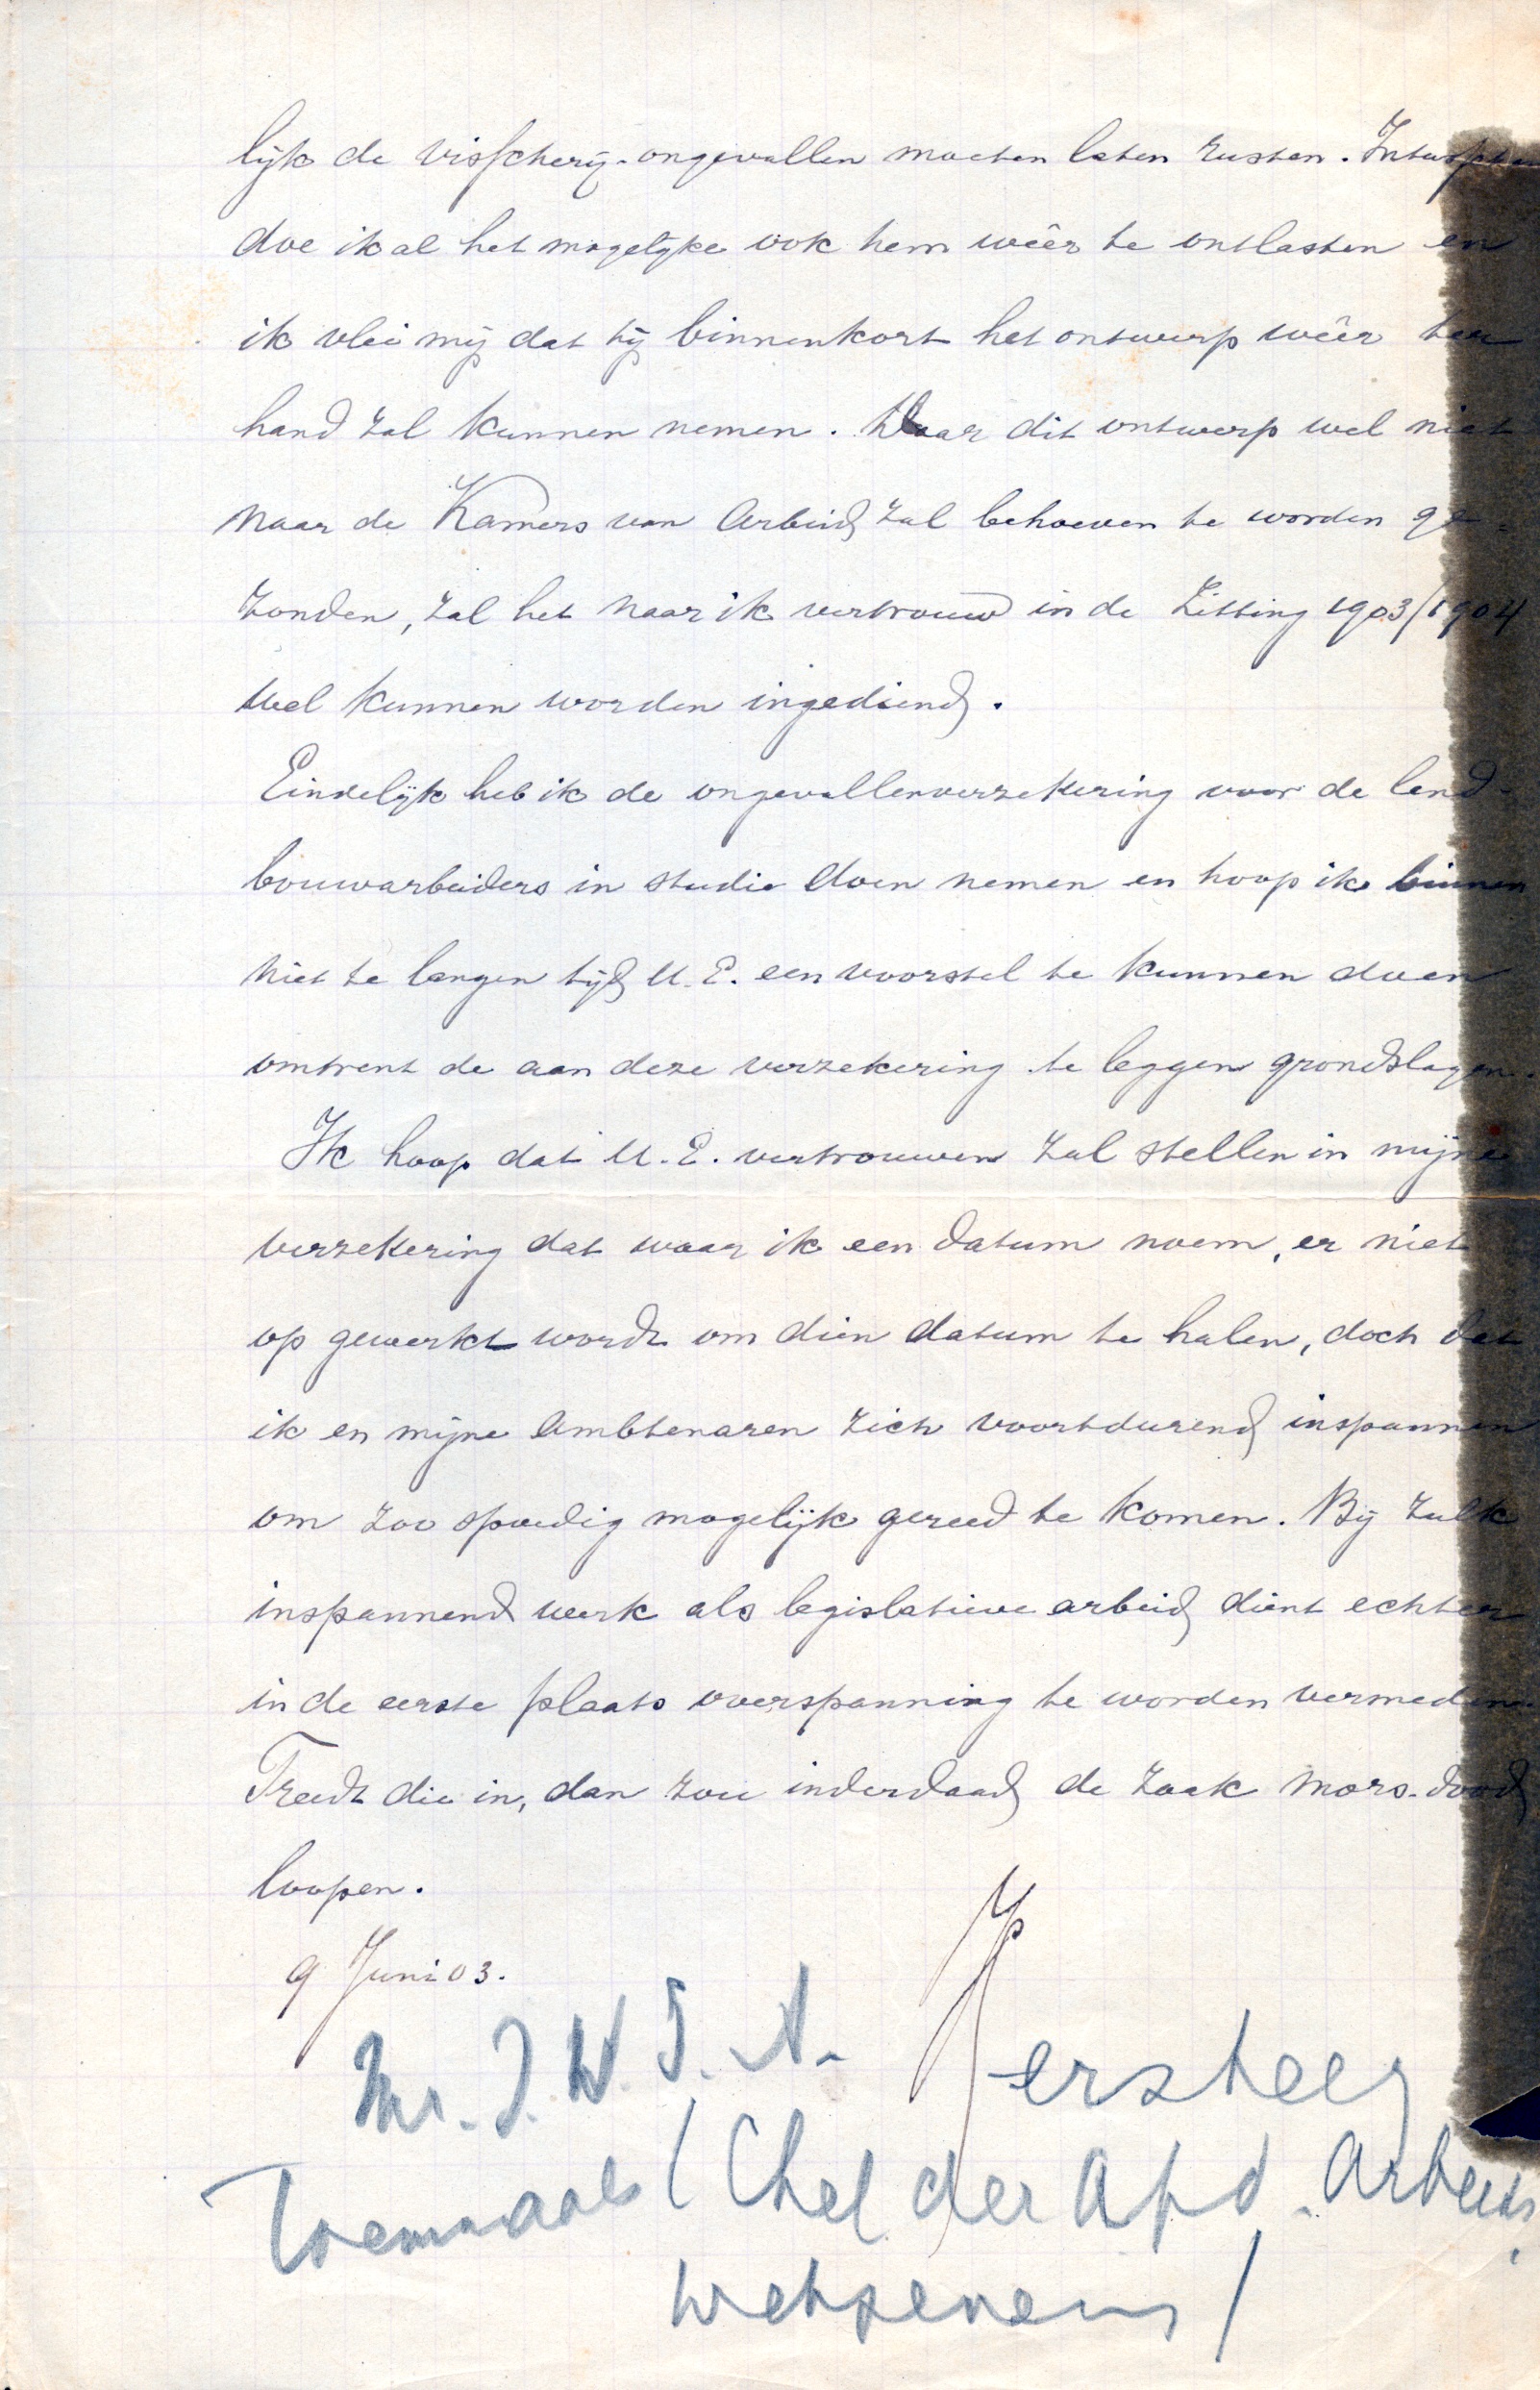 lijk de visscherij-ongevallen moeten laten rusten. Intusschen
doe ik al het mogelijke ook hem wêer te ontlasten en
ik vlei mij dat hij binnenkort het ontwerp wêer ter
hand zal kunnen nemen. Daar dit ontwerp wel niet
naar de Kamers van Arbeid zal behoeven te worden ge-
zonden, zal het naar ik vertrouw in de Zitting 1903/1904
wel kunnen worden ingediend.
Eindelijk heb ik de ongevallenverzekering voor de land-
bouwarbeiders in studie doen nemen en hoop ik binnen
niet te langen tijd U.E. een voorstel te kunnen doen
omtrent de aan deze verzekering te leggen grondslagen.
Ik hoop dat U.E. vertrouwen zal stellen in mijne
verzekering dat waar ik een datum noem, er niet
op gewerkt wordt om dien datum te halen, doch dat
ik en mijne ambtenaren zich voortdurend inspannen
om zoo spoedig mogelijk gereed te komen. Bij zulk
inspannend werk als legislatieve arbeid dient echter
in de eerste plaats overspanning te worden vermeden.
Treedt die in, dan zou inderdaad de zaak mors-dood
loopen.
9 Juni 03.
Mr. J. W. S. A. Versteeg
Toenmaals (Chef der Afd. Arbeids
wetgeving)